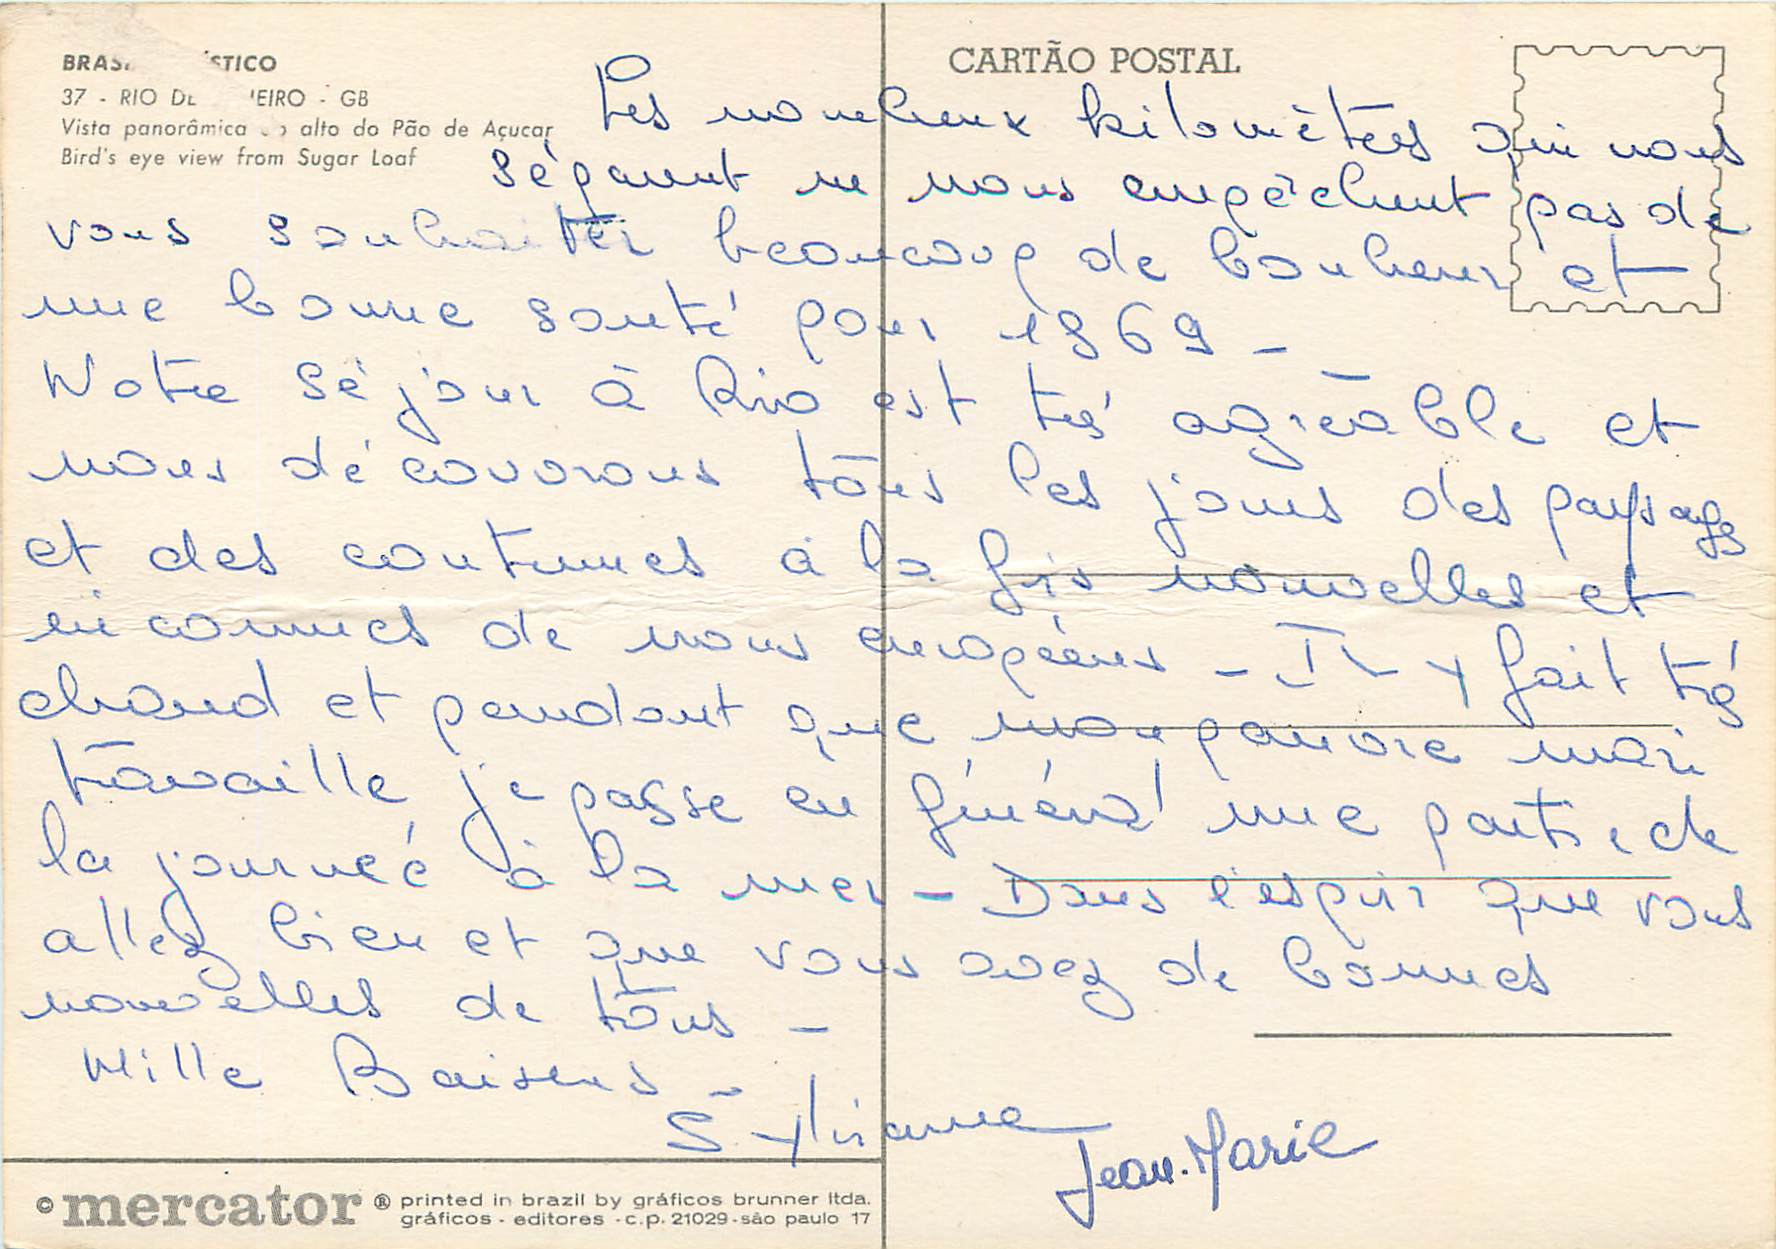 BRAS STICO
37 - RIO DE EIRO - GB
Vista panorâmica do alto do Pão de Açucar
Bird's eye view from Sugar Loaf
CARTÃO POSTAL
Les nombreux kilomètres qui nous
séparent ne nous empêchent pas de
vous souhaiter beaucoup de bonheur et
une bonne santé pour 1969 -
Notre séjour à Rio est très agréable et
nous découvrons tous les jours des paysages
et des coutumes à la fois nouvelles et
inconnues de nous européens - Il y fait très
chaud et pendant que mon pauvre mari
travaille je passe en général une partie de
la journée à la mer - Dans l'espoir que vous
allez bien et que vous avez de bonnes
nouvelles de tous -
Mille Baisers -
Sylviane
Jean-Marie
© mercator ® printed in brazil by gráficos brunner ltda.
gráficos - editores - c.p. 21029 - são paulo 17